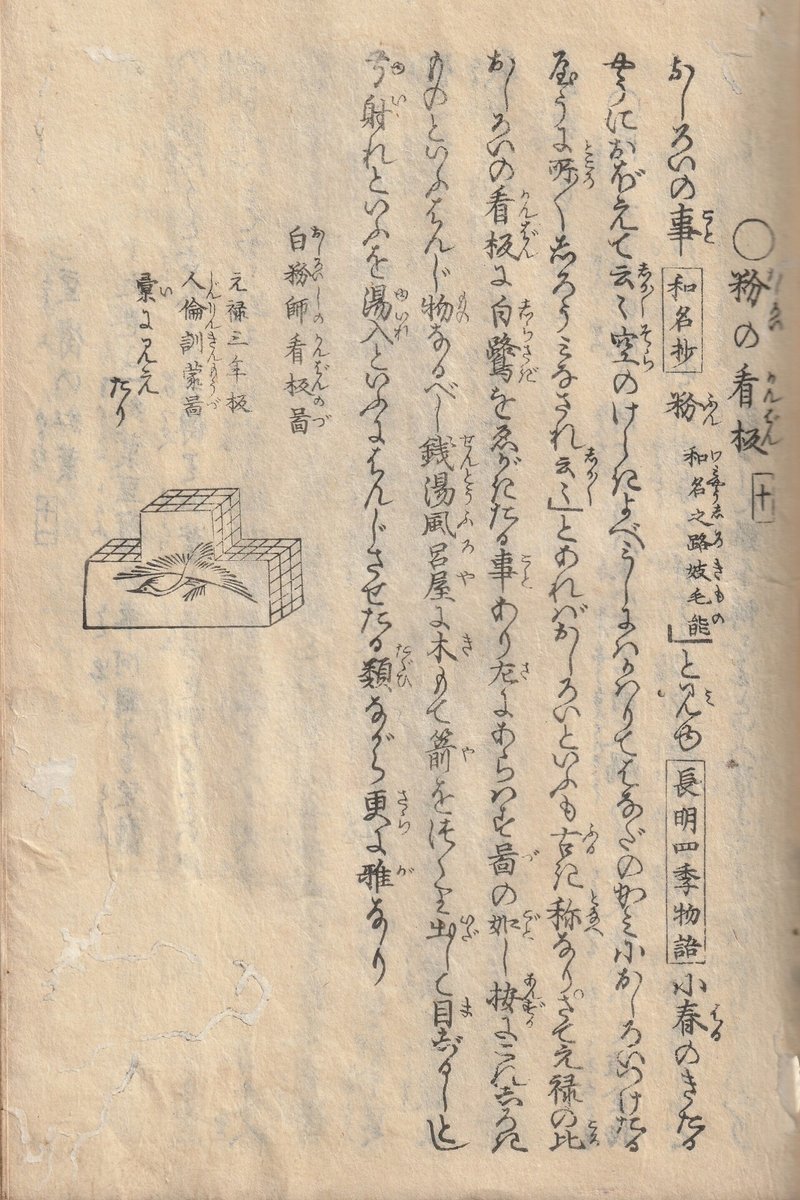 ○粉の看板 十
おしろいの事 和名抄 粉 和名之路妓毛能」と見ゆ 長明四季物語 小春のきたる
うにおぼえて云々空のけしきよべうしにはかはりてはなだのかみにおしろいつけたる
やうに所々しろうみなされ云々」とあればおしろいといふも古き称なりさて元禄の比
おしろいの看板に白鷺をゑがきたる事あり左にあらはす図の如し按にこれしろき
ものといふはんじ物なるべし銭湯風呂屋に木もて箭をつくり出して目じるしとし
弓射れといふを湯入といふにはんじさせたる類ながら更に雅なり
白粉師看板図
元禄三年板
人倫訓蒙図
彙に見え
たり